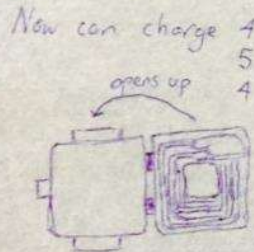 Now can charge 4
5
4
opens up